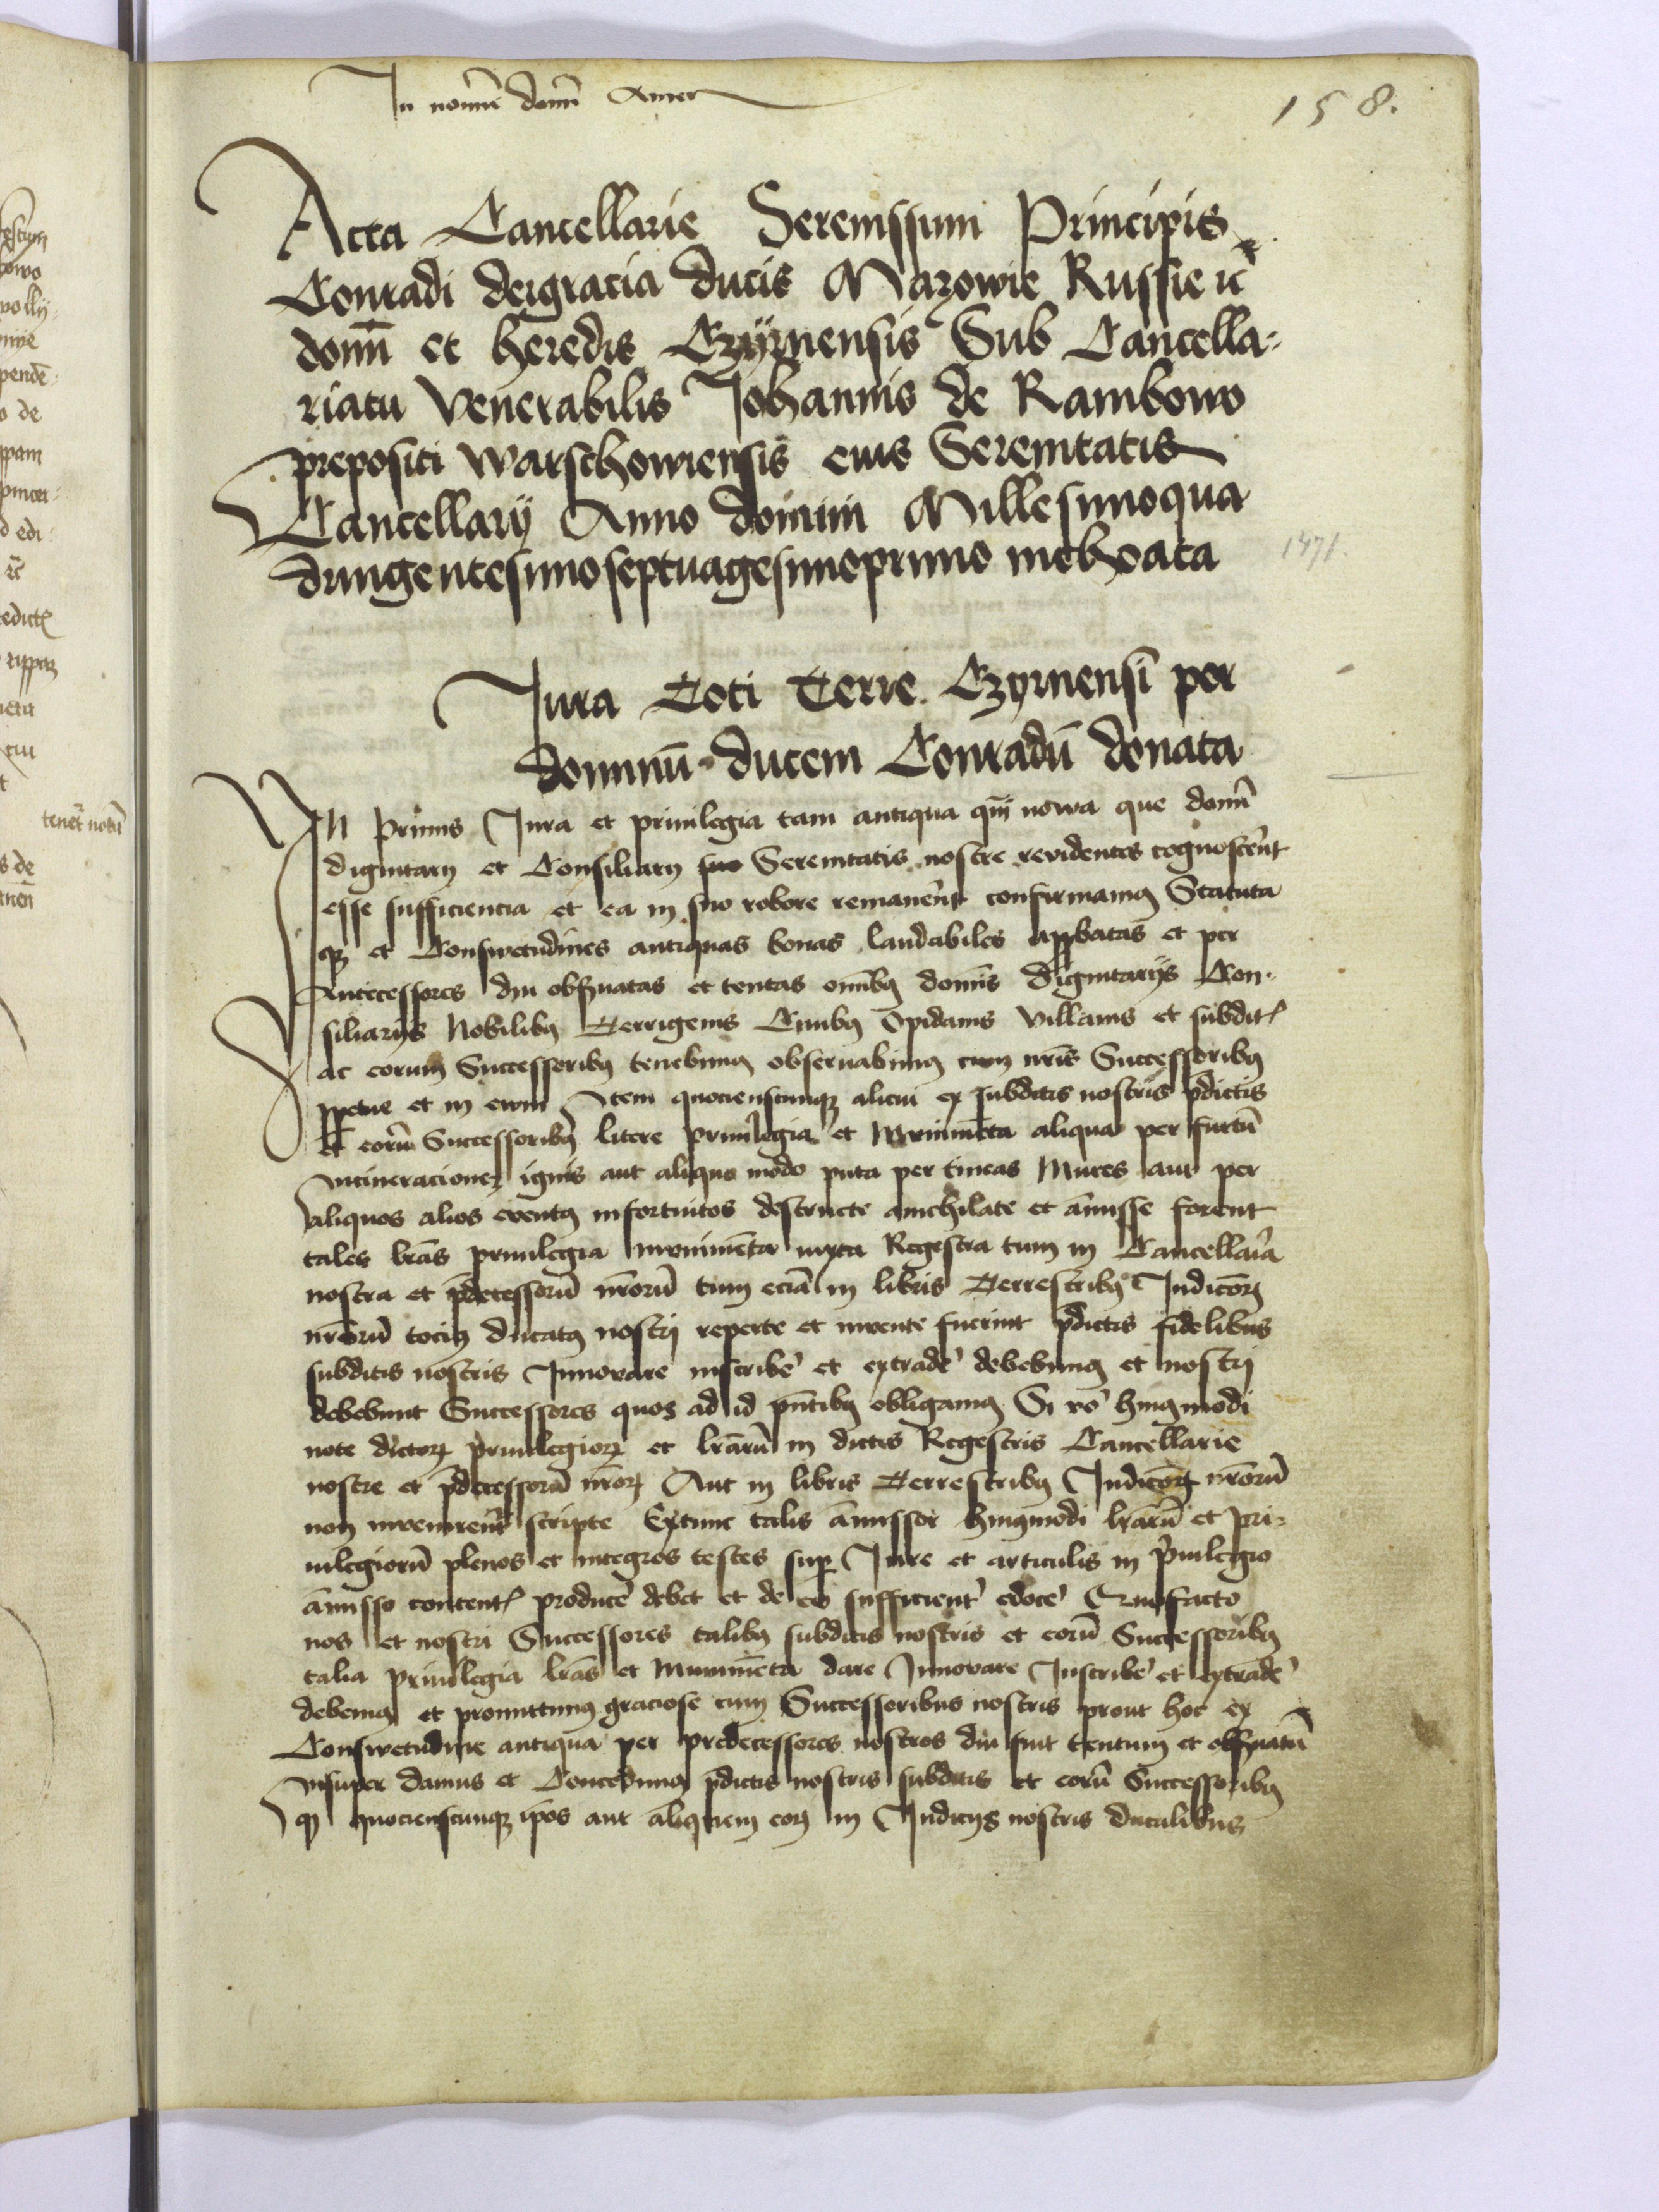 In nomine domini Amen
158.
Acta Cancellarie Serenissimi Principis
Conradi deigracia ducis Mazowie Russie ꝛc
domī et heredis Czÿrnensis Sub Cancella-
riatu Venerabilis Johannis de Rambowo
prepositi Warschowiensis eius Serenitatis
Cancellarÿ Anno domini Millesimoqua
dringentesimoseptuagesimoprimo inchoata
1471.
Jura Toti Terre Czyrnensī per
dominū ducem Conradū donata
In primis Jura et priuilegia tam antiqua qm̄ nowa que domī
dignitarÿ et Consiliarÿ Serenitatis nostre revidentes cognoscēnt
esse sufficiencia et ea in suo robore remanēnt confirmamꝰ Statuta
qꝫ et Conswetudines antiquas bonas laudabiles appbatas et per
Antecessores diu obsuatas et tentas omībꝰ domīs dignitarÿs Con-
siliarÿs Nobilibꝰ Terrigenis Ciuibꝰ Opidanis Villanis et subditꝭ
ac eorum Successoribꝰ tenebimꝰ obseruabimꝰ cum nrīs Successoribꝰ
ppetue et in ewm Item quocienscunqꝫ alicui ex subditis nostris pdictis
et eorū Successoribꝰ litere priuilegia et Munimēta aliqua per furtū
Incineracionez ignis aut aliquo modo puta per tineas Mures aut per
aliquos alios eventꝰ infortuitos destructe anichilate et āmisse forent
tales lrās priuilegia munimēta iuxta Regestra tum in Cancellaria
nostra et pdecessorū nrōrū tum eciā in libris Terrestribꝰ Judicōꝝ
nrōrū tociꝰ ducatꝰ nostri reperte et invente fuerint pdictis fidelibus
subditis nostris Innovare inscribē et extradē debebimꝰ et nostri
debebunt Successores quos ad id pn̄tibꝰ obligamꝰ Si vō hmꝰmodi
note dictoꝝ priuilegioꝝ et lrārū in dictis Regestris Cancellarie
nostre et pdecessorū nrōꝝ Aut in libris Terrestribꝰ Judicōꝝ nrōrū
non invenirēnt scripte Extunc talis āmissor hmꝰmodi lrārū et Pri-
uilegiorū plenos et integros testes sup Jure et articulis in priuilegio
āmisso contentꝭ producē debet et de eo sufficient edocē Quofacto
nos et nostri Successores talibꝰ subditis nostris et eorū Successoribꝰ
talia priuilegia lrās et Munimēta dare Innovare Inscribē et extradē
debemꝰ et promittimꝰ graciose cum Successoribus nostris prout hoc ex
Conswetudine antiqua per predecessores nostros diu fuit tentum et obsuatū
Insuper damus et Concedimꝰ pdictis nostris subditis et eorū Successoribꝰ
qꝫ quocienscunqꝫ ip̄os aut aliquem eoꝝ in Judicÿs nostris ducalibus